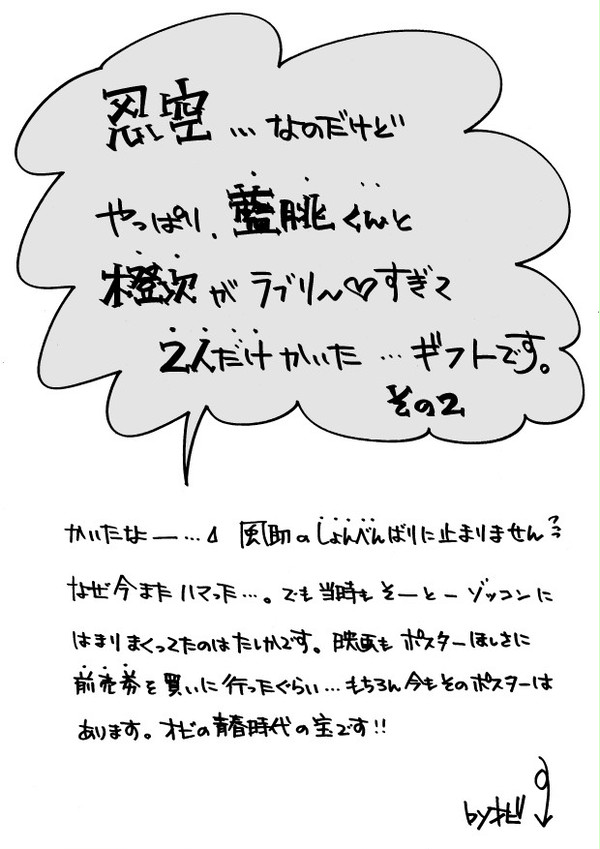 忍空…なのだけど
やっぱり、藍朓くんと
橙次がラブリ〜♡すぎて
2人だけかいた…ギフトです。
その2
かいたなー… 風助のしょんべんばりに止まりませんフフ
なぜ今またハマった…。でも当時もそーとーゾッコンに
はまりまくってたのはたしかです。映画もポスターほしさに
前売券を買いに行ったぐらい…もちろん今もそのポスターは
あります。オビの青春時代の宝です!!
byオビ